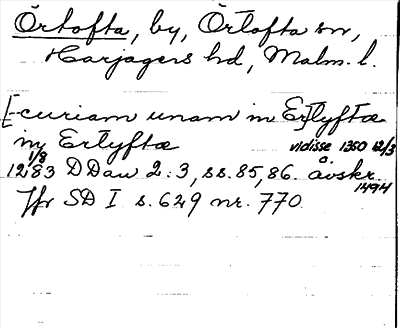 Örtofta, by, Örtofta sn,
Harjagers hd, Malm. l.
[-curiam unam in Er]tlyftæ
in Ertlyftæ vidisse 1350 12/3
1/8 1283 DDaw 2:3, ss. 85, 86. åvskr. 1494
Jfr SD I s. 629 nr. 770.